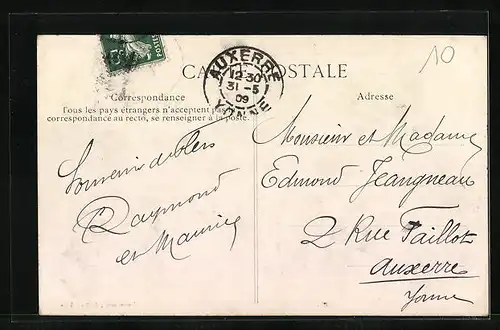 10
POSTES
AUXERRE
12-30
31 -5
09
YONNE
CARTE POSTALE
Correspondance
Tous les pays étrangers n'acceptent pas la
correspondance au recto, se renseigner à la poste.
Adresse
Souvenir de
Raymond
et Maurice
Monsieur et Madame
Edmond Jeangneau
2 Rue Paillot
Auxerre
Yonne